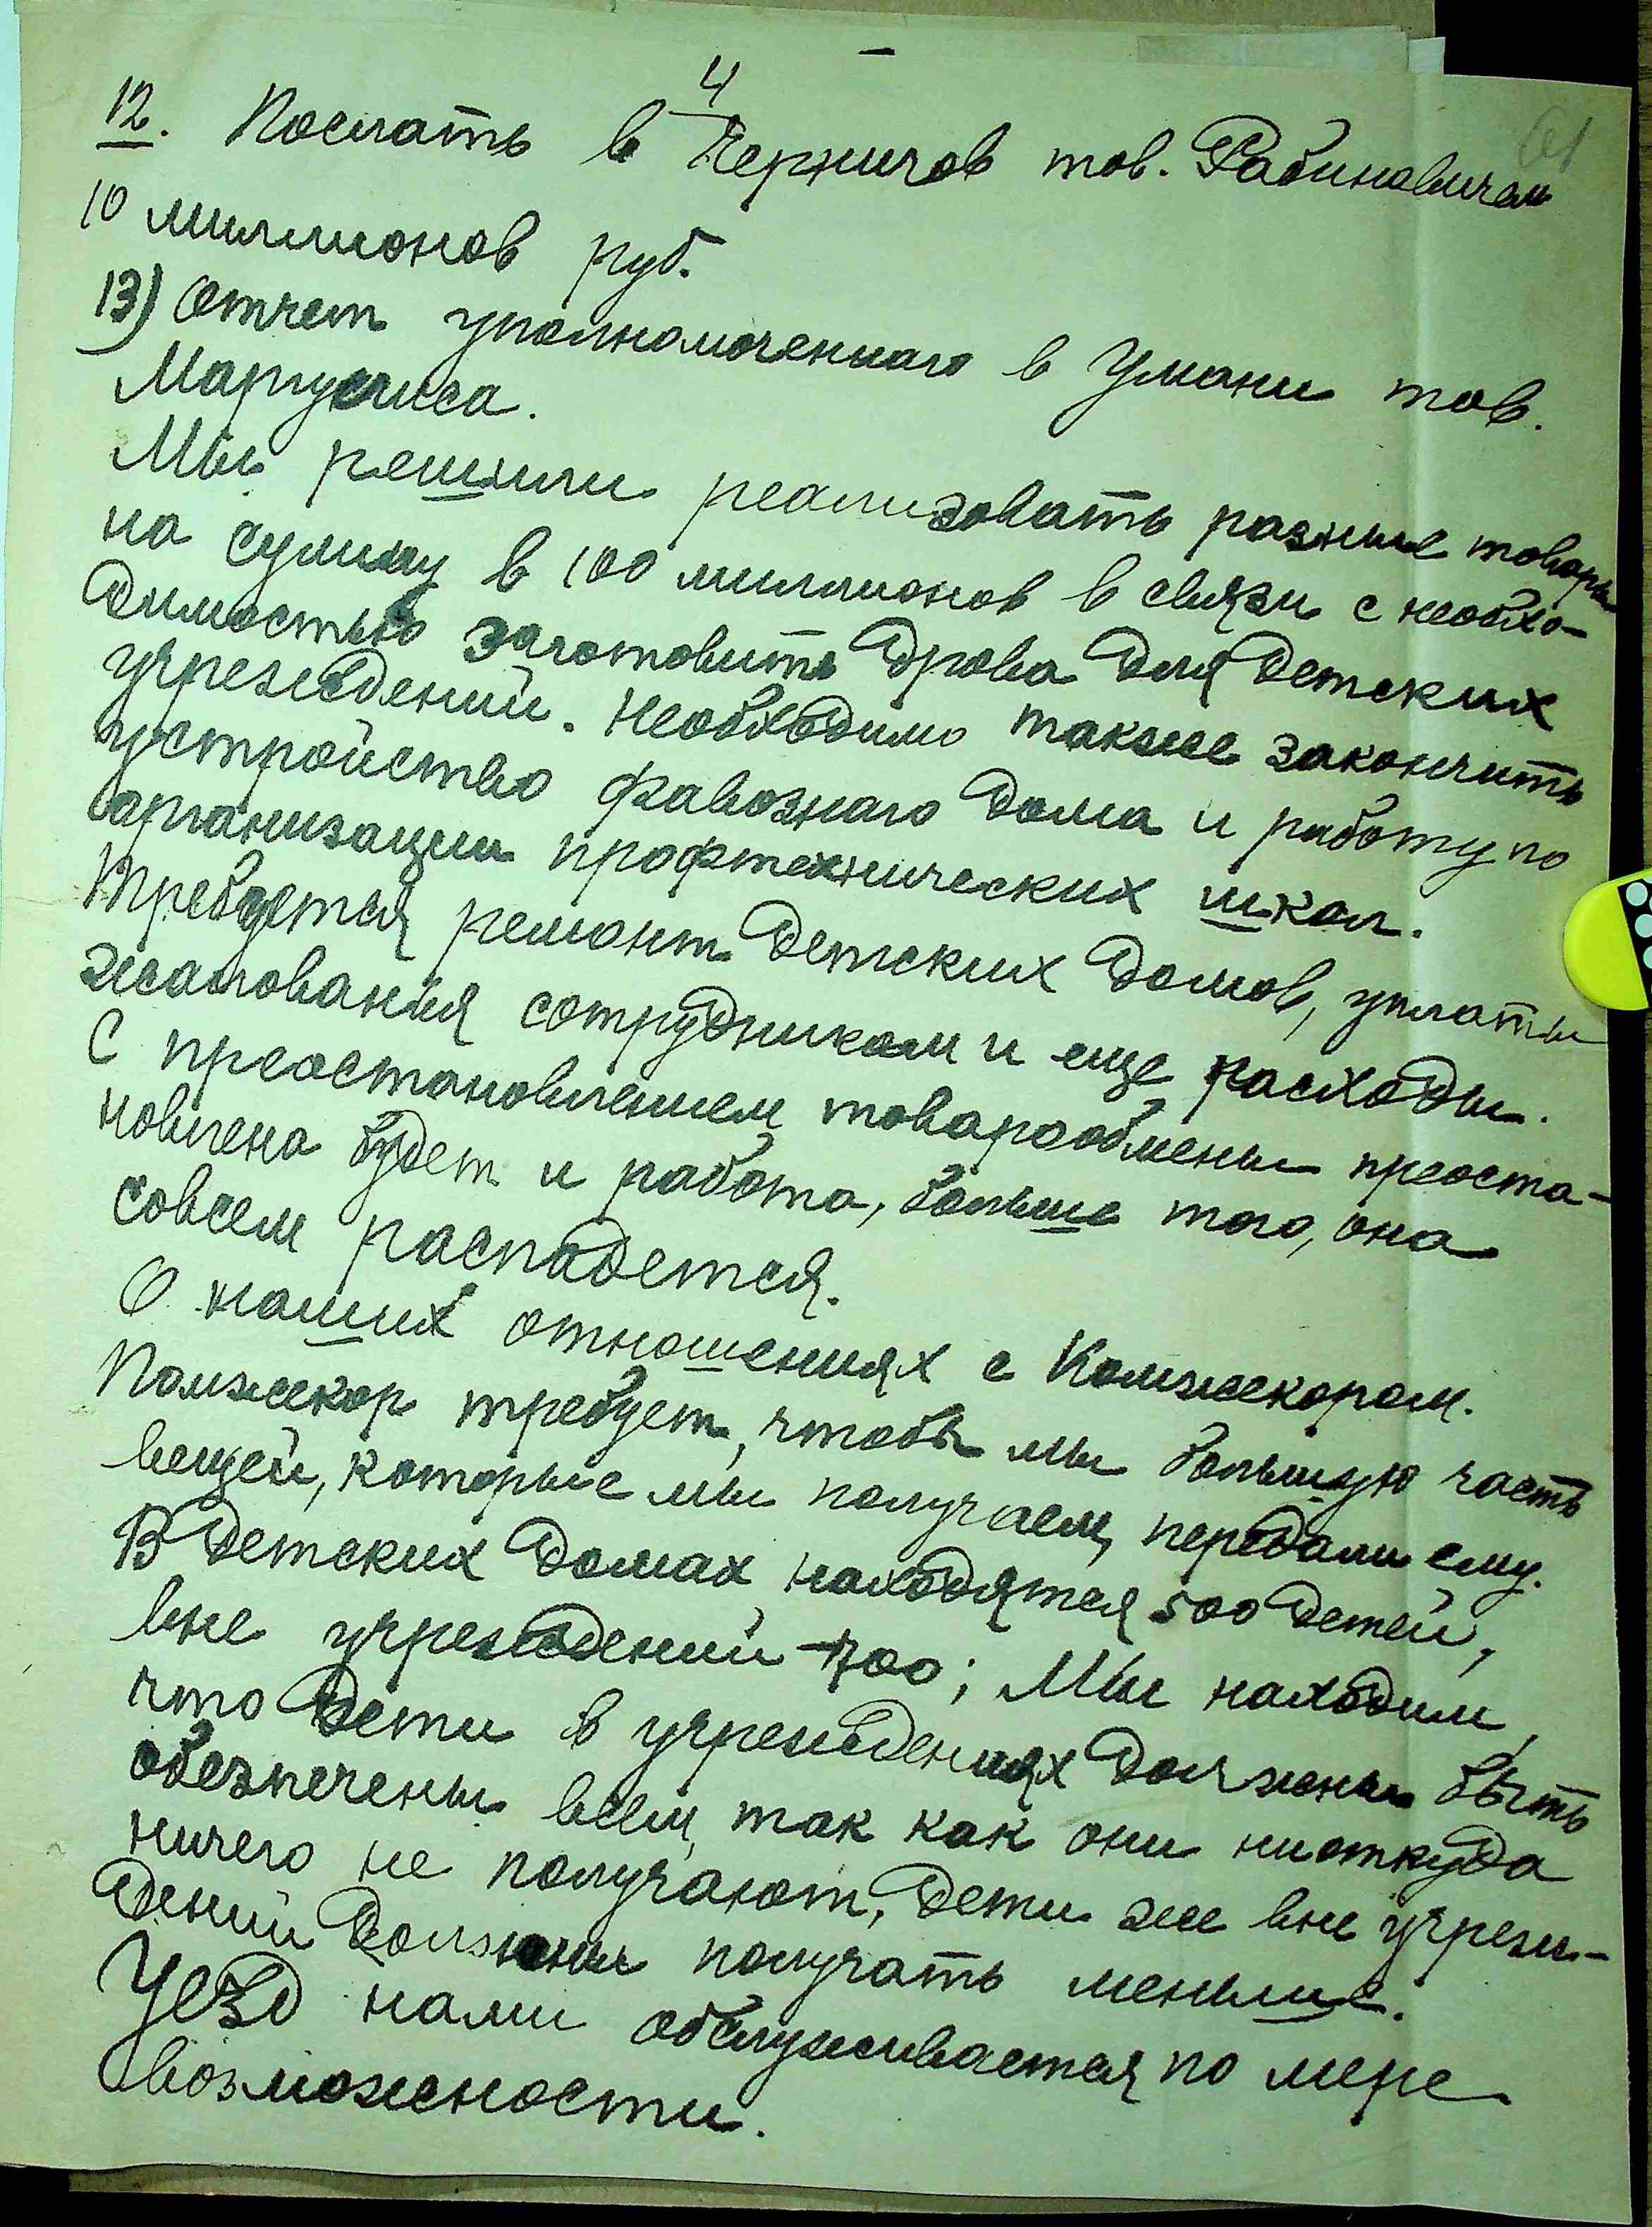 4
61
12. Послать в Чернигов тов. Рабиновичем
10 миллионов руб.
13) Отчет уполномоченнаго в Умани тов.
Маргулиса.
Мы решили реализовать разные товары
на сумму в 100 миллионов в связи с необхо-
димостью заготовить дрова для детских
учреждений. Необходимо также закончить
устройство фавознаго дома и работу по
организации профтехнических школ.
Требуется ремонт детских домов, уплаты
жалования сотрудникам и еще расходы.
С преостановлением товарообмены преоста-
новлена будет и работа, больше того, она
совсем распадется.
О наших отношениях с Комжекором.
Помжекор требует, чтобы мы большую часть
вещей, которые мы получаем, передали ему.
В детских домах находятся 500 детей,
вне учреждений 700; Мы находим,
что дети в учреждениях должны быть
обезпечены всем, так как они ниоткуда
ничего не получают, дети же вне учреж-
дений должны получать меньше.
Уезд нами обслуживается по мере
возможности.